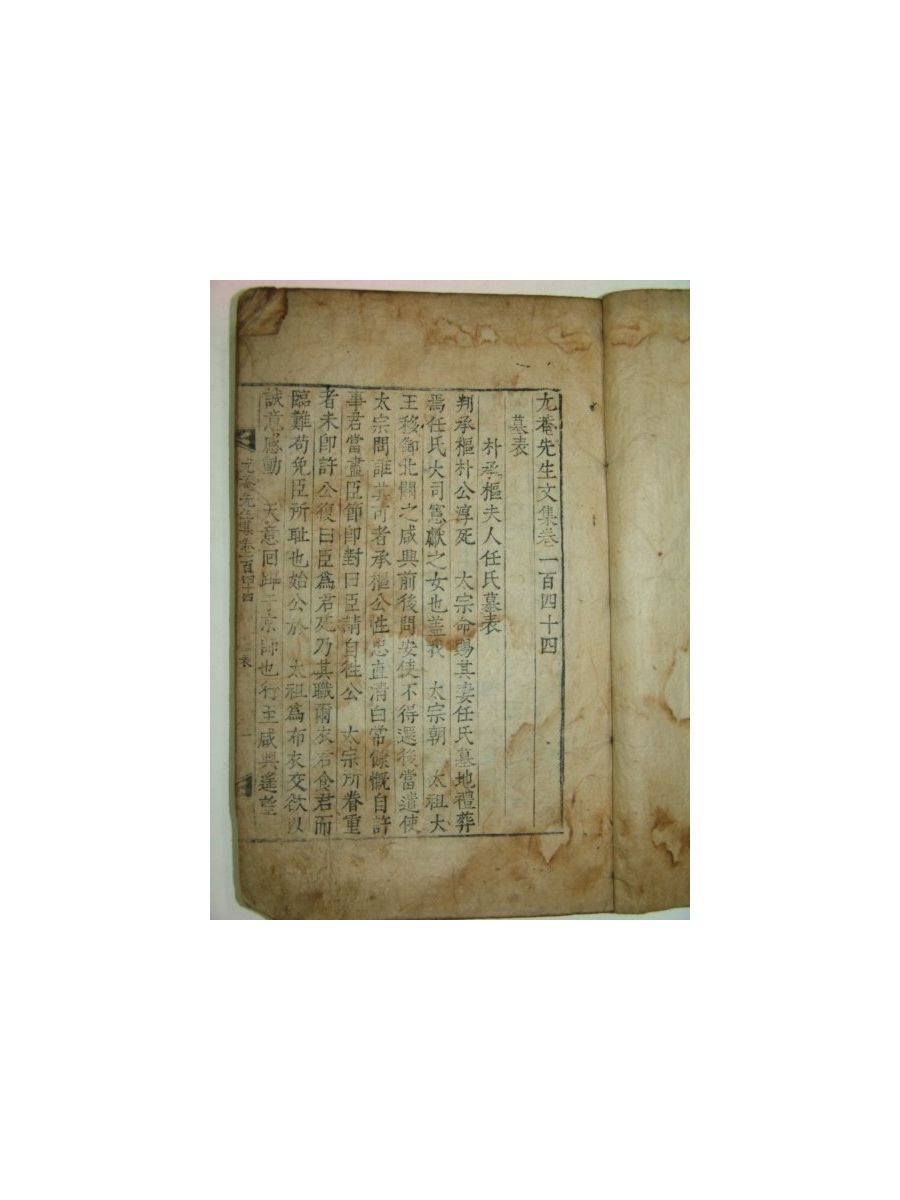 尤菴先生文集卷一百四十四
墓表
朴承樞夫人任氏墓表
判承樞朴公淳死 太宗命賜其妻任氏墓地禮葬
焉任氏大司憲獻之女也盖我 太宗朝 太祖大
王移御北闕之咸興前後問安使不得還後當遣使
太宗問誰其可者承樞公性忠直清白常慷慨自許
事君當盡臣節卽對曰臣請自往公 太宗所眷重
者未卽許公復曰臣爲君死乃其職爾衣君食君而
臨難苟免臣所耻也始公於 太祖爲布衣交欲以
誠意感動 天意回蹕于京師也行至咸興遙望
尤菴先生集卷一百四十四 表 一